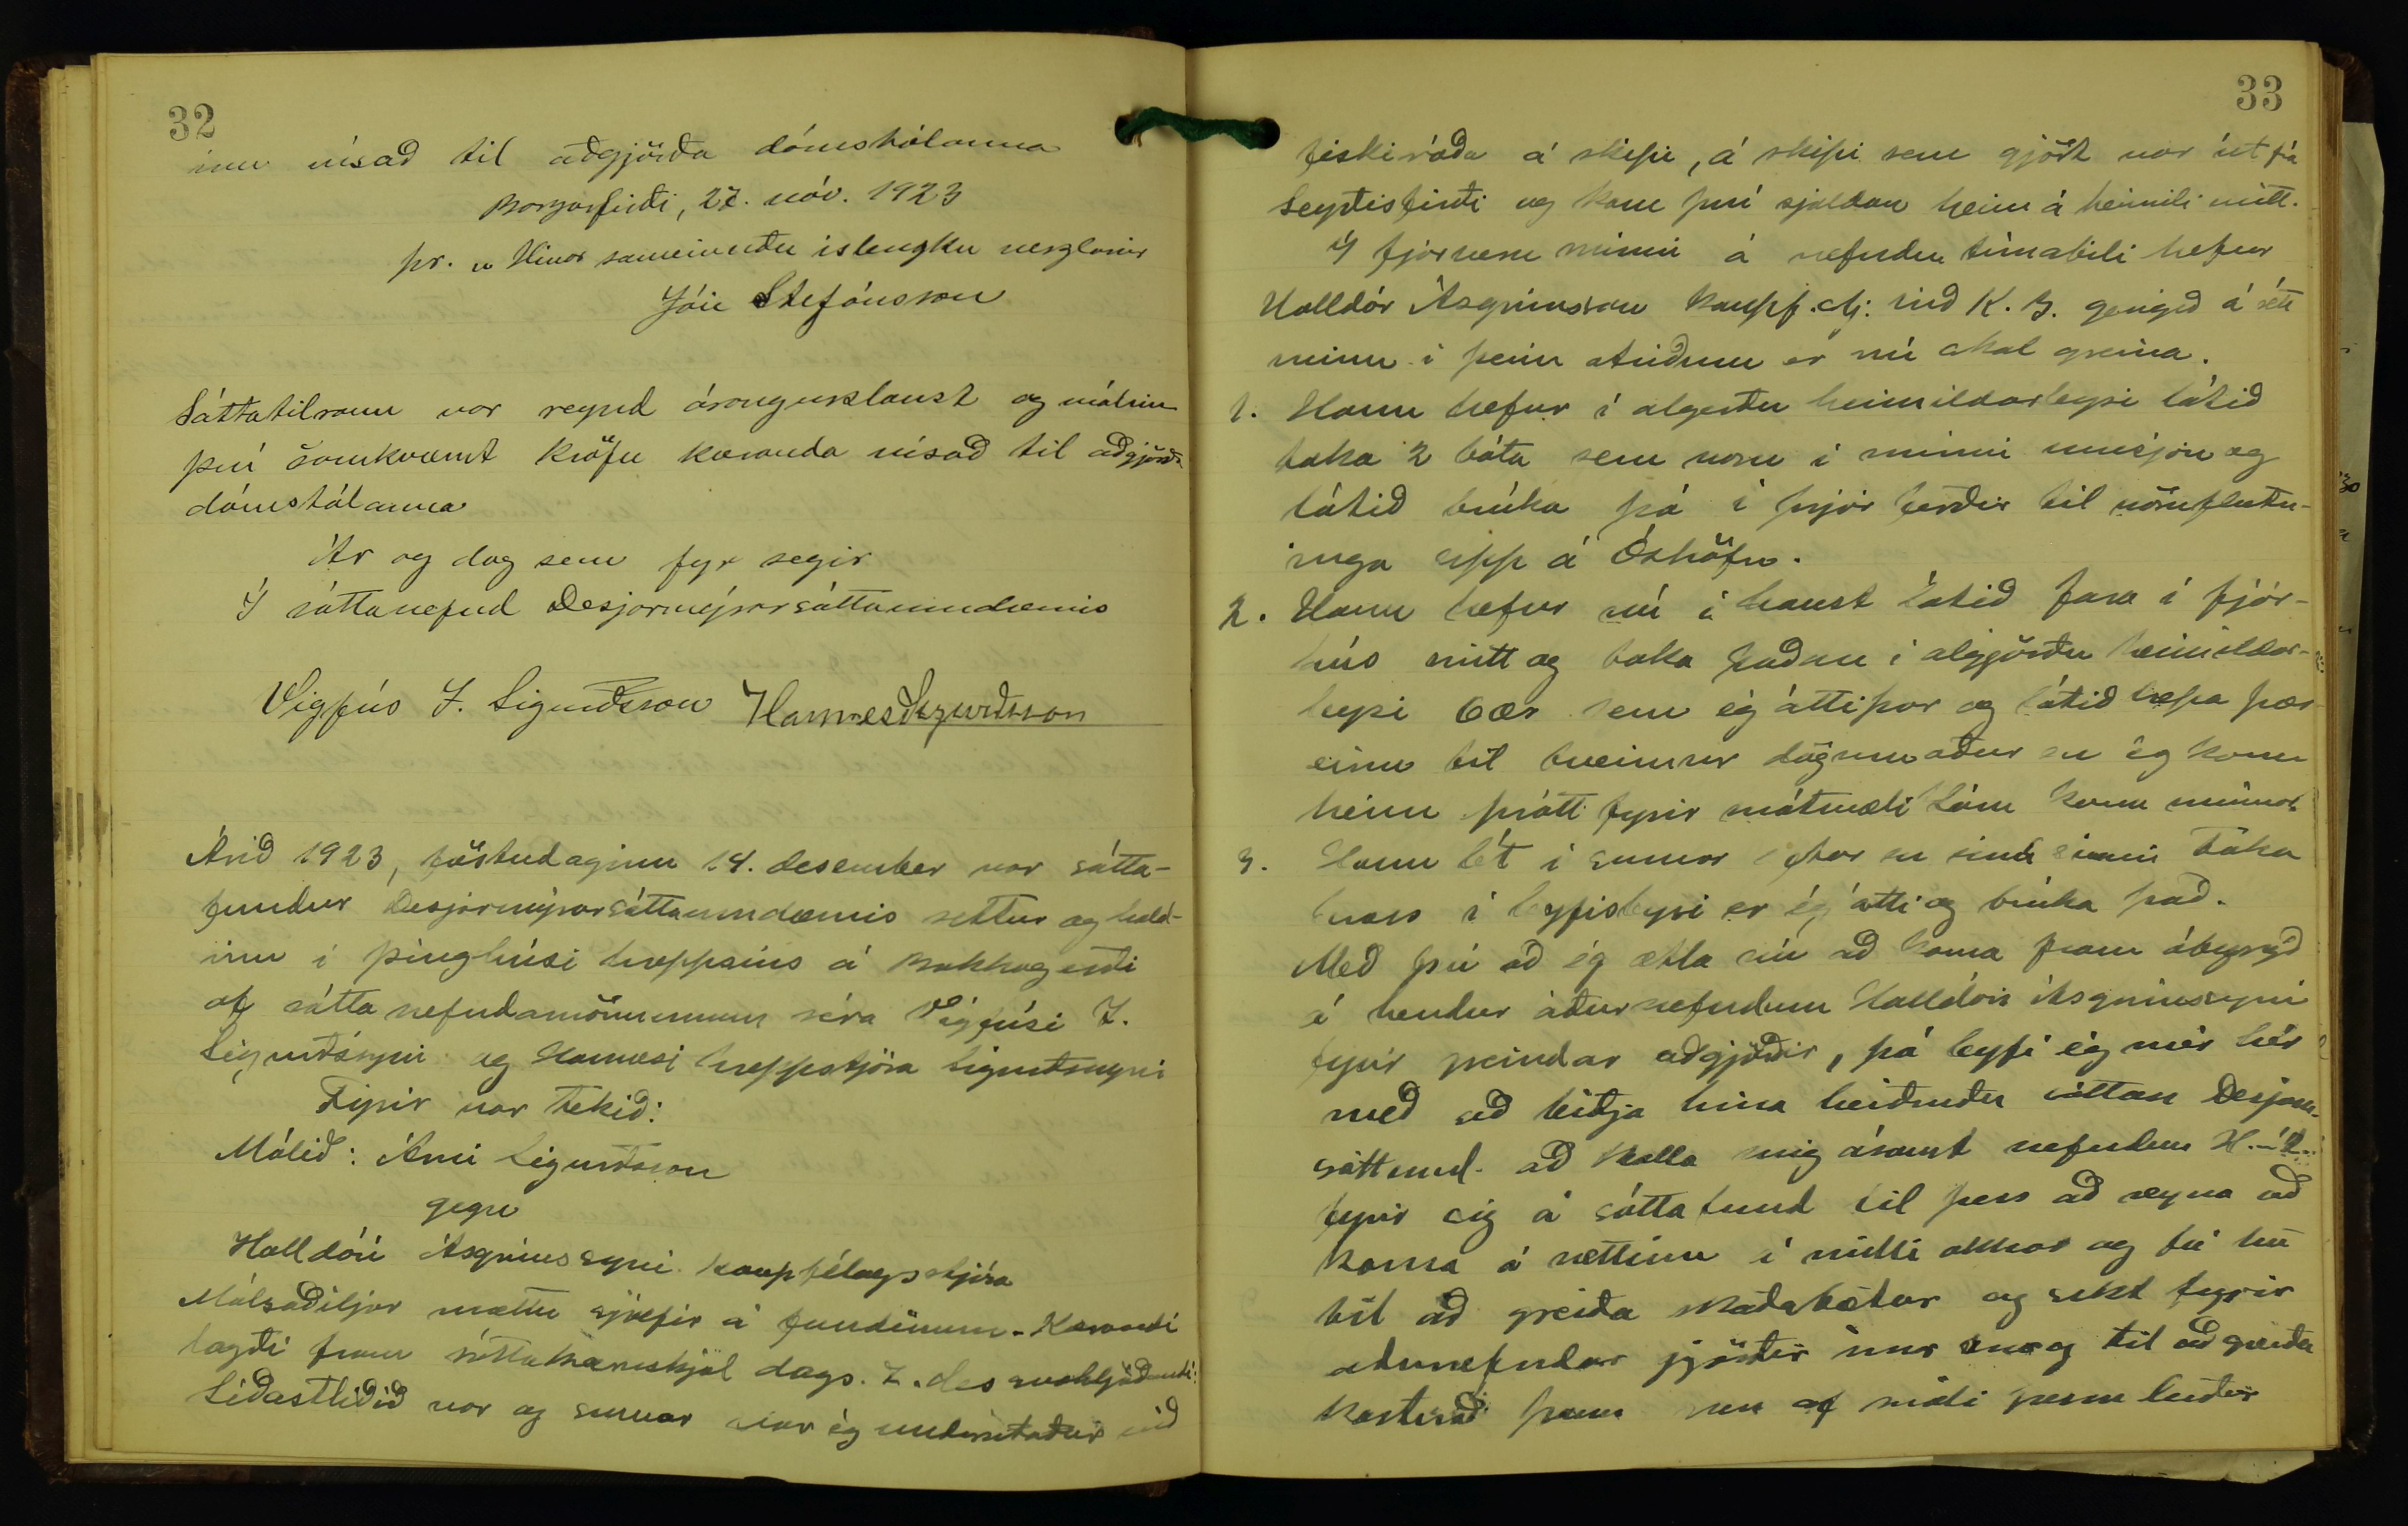 32
inu vísað til aðgjörða dómstólanna
Borgarfirði, 27. nóv. 1923
pr. „ Hinar sameinuðu íslenzku verzlanir
Jón Stefánsson
Sáttatilraun var reynd árangurslaust og málinu
því samkvæmt kröfu kæranda vísað til aðgjörða
dómstólanna
Ár og dag sem fyr segir
Í sáttanefnd Desjarmýrarsáttaumdæmis
Vigfús I. Sigurðsson Hannes Sigurðsson
Árið 1923, föstudaginn 14. desember var sátta-
fundur Desjarmýrarsáttaumdæmis settur og hald-
inn í þinghúsi hreppsins á Bakkagerði
af sáttanefndamönnunum séra Vigfúsi I.
Sigurðssyni og Hannesi hreppstjóra Sigurðssyni
Fyrir var tekið:
Málið: Árni Sigurðsson
gegn
Halldóri Ásgrímssyni kaupfélagsstjóra
Málsaðiljar mættu sjálfir á fundinum. Kærandi
lagði fram sáttakæruskjal dags. 7. des svohljóðandi:
Síðastliðið vor og sumar var ég undirritaður við
33
fiskiróða á skipi, á skipi sem gjört var út frá
Seyðisfirði og kom því sjaldan heim á heimili mitt.
Í fjarveru minni á nefndu tímabili hefur
Halldór Ásgrímsson kaupf.stj. við K. B. gengið á rétt
minn í þeim atriðum er nú skal greina.
1. Hann hefur í algerðu heimildarleysi látið
taka 2 báta sem voru í minni umsjón og
látið brúka þá í þrjár ferðir til vöruflutn-
inga upp á Óshöfn.
2. Hann hefur nú í haust látið fara í fjár-
hús mitt og taka þaðan í algjörðu heimildar-
leysi 6 ær sem ég átti þar og látið þær
einu til tveimur dögum áður en ég kom
heim þrátt fyrir mótmæli konu minnar
3. Hann lét í sumar oftar en einu sinni taka
hross í leyfisleysi er ég átti og brúka það.
Með því að ég ætla nú að koma fram ábyrgð
á hendur áðurnefndum Halldóri Ásgrímssyni
fyrir greindar aðgjörðir, þá leyfi ég mér hér
með að biðja hina heiðruðu sáttan Desjarm.
sáttaumd. að kalla mig ásamt nefndum H. Á.
fyrir sig á sáttafund til þess að reyna að
koma á sættum í milli okkar og fá hn
til að greiða skaðabætur og sekt fyrir
áðurnefndar gjörðir og til að greiða
kostnað þann sem af máli þessu leiðir